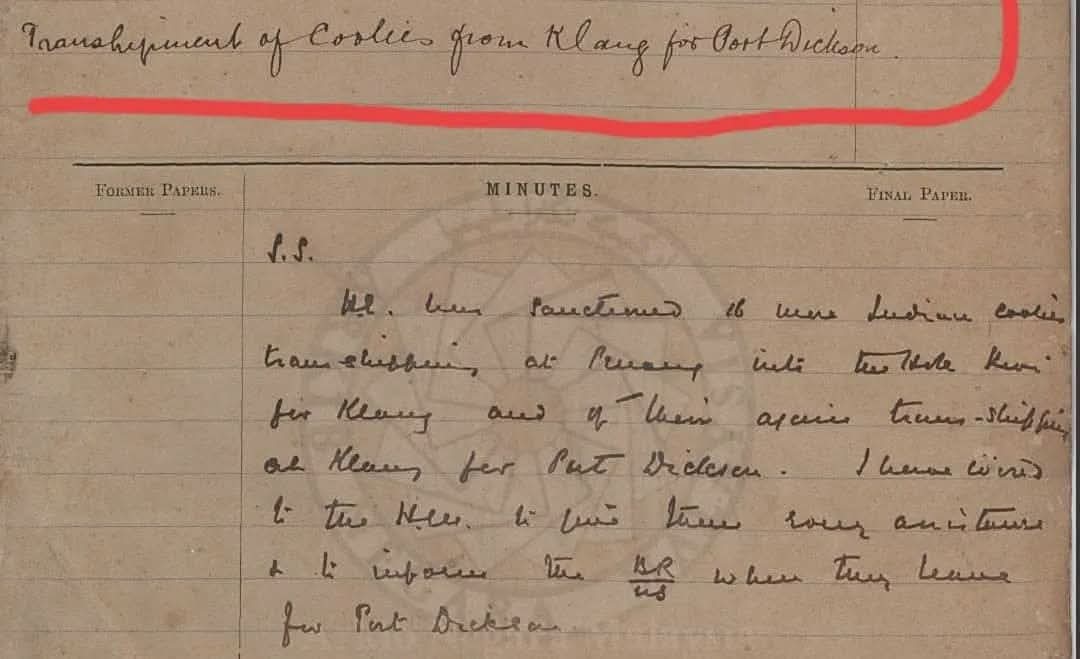 Transhipment of Coolies from Klang for Port Dickson
FORMER PAPERS.
MINUTES.
FINAL PAPER.
S.S.
HE. has sanctioned 16 more Indian coolies
trans-shipping at Penang into the Hole
for Klang and of their again trans-shipping
at Klang for Port Dickson. I have wired
to the to give them every assistance
& to inform the BR when they leave
for Port Dickson